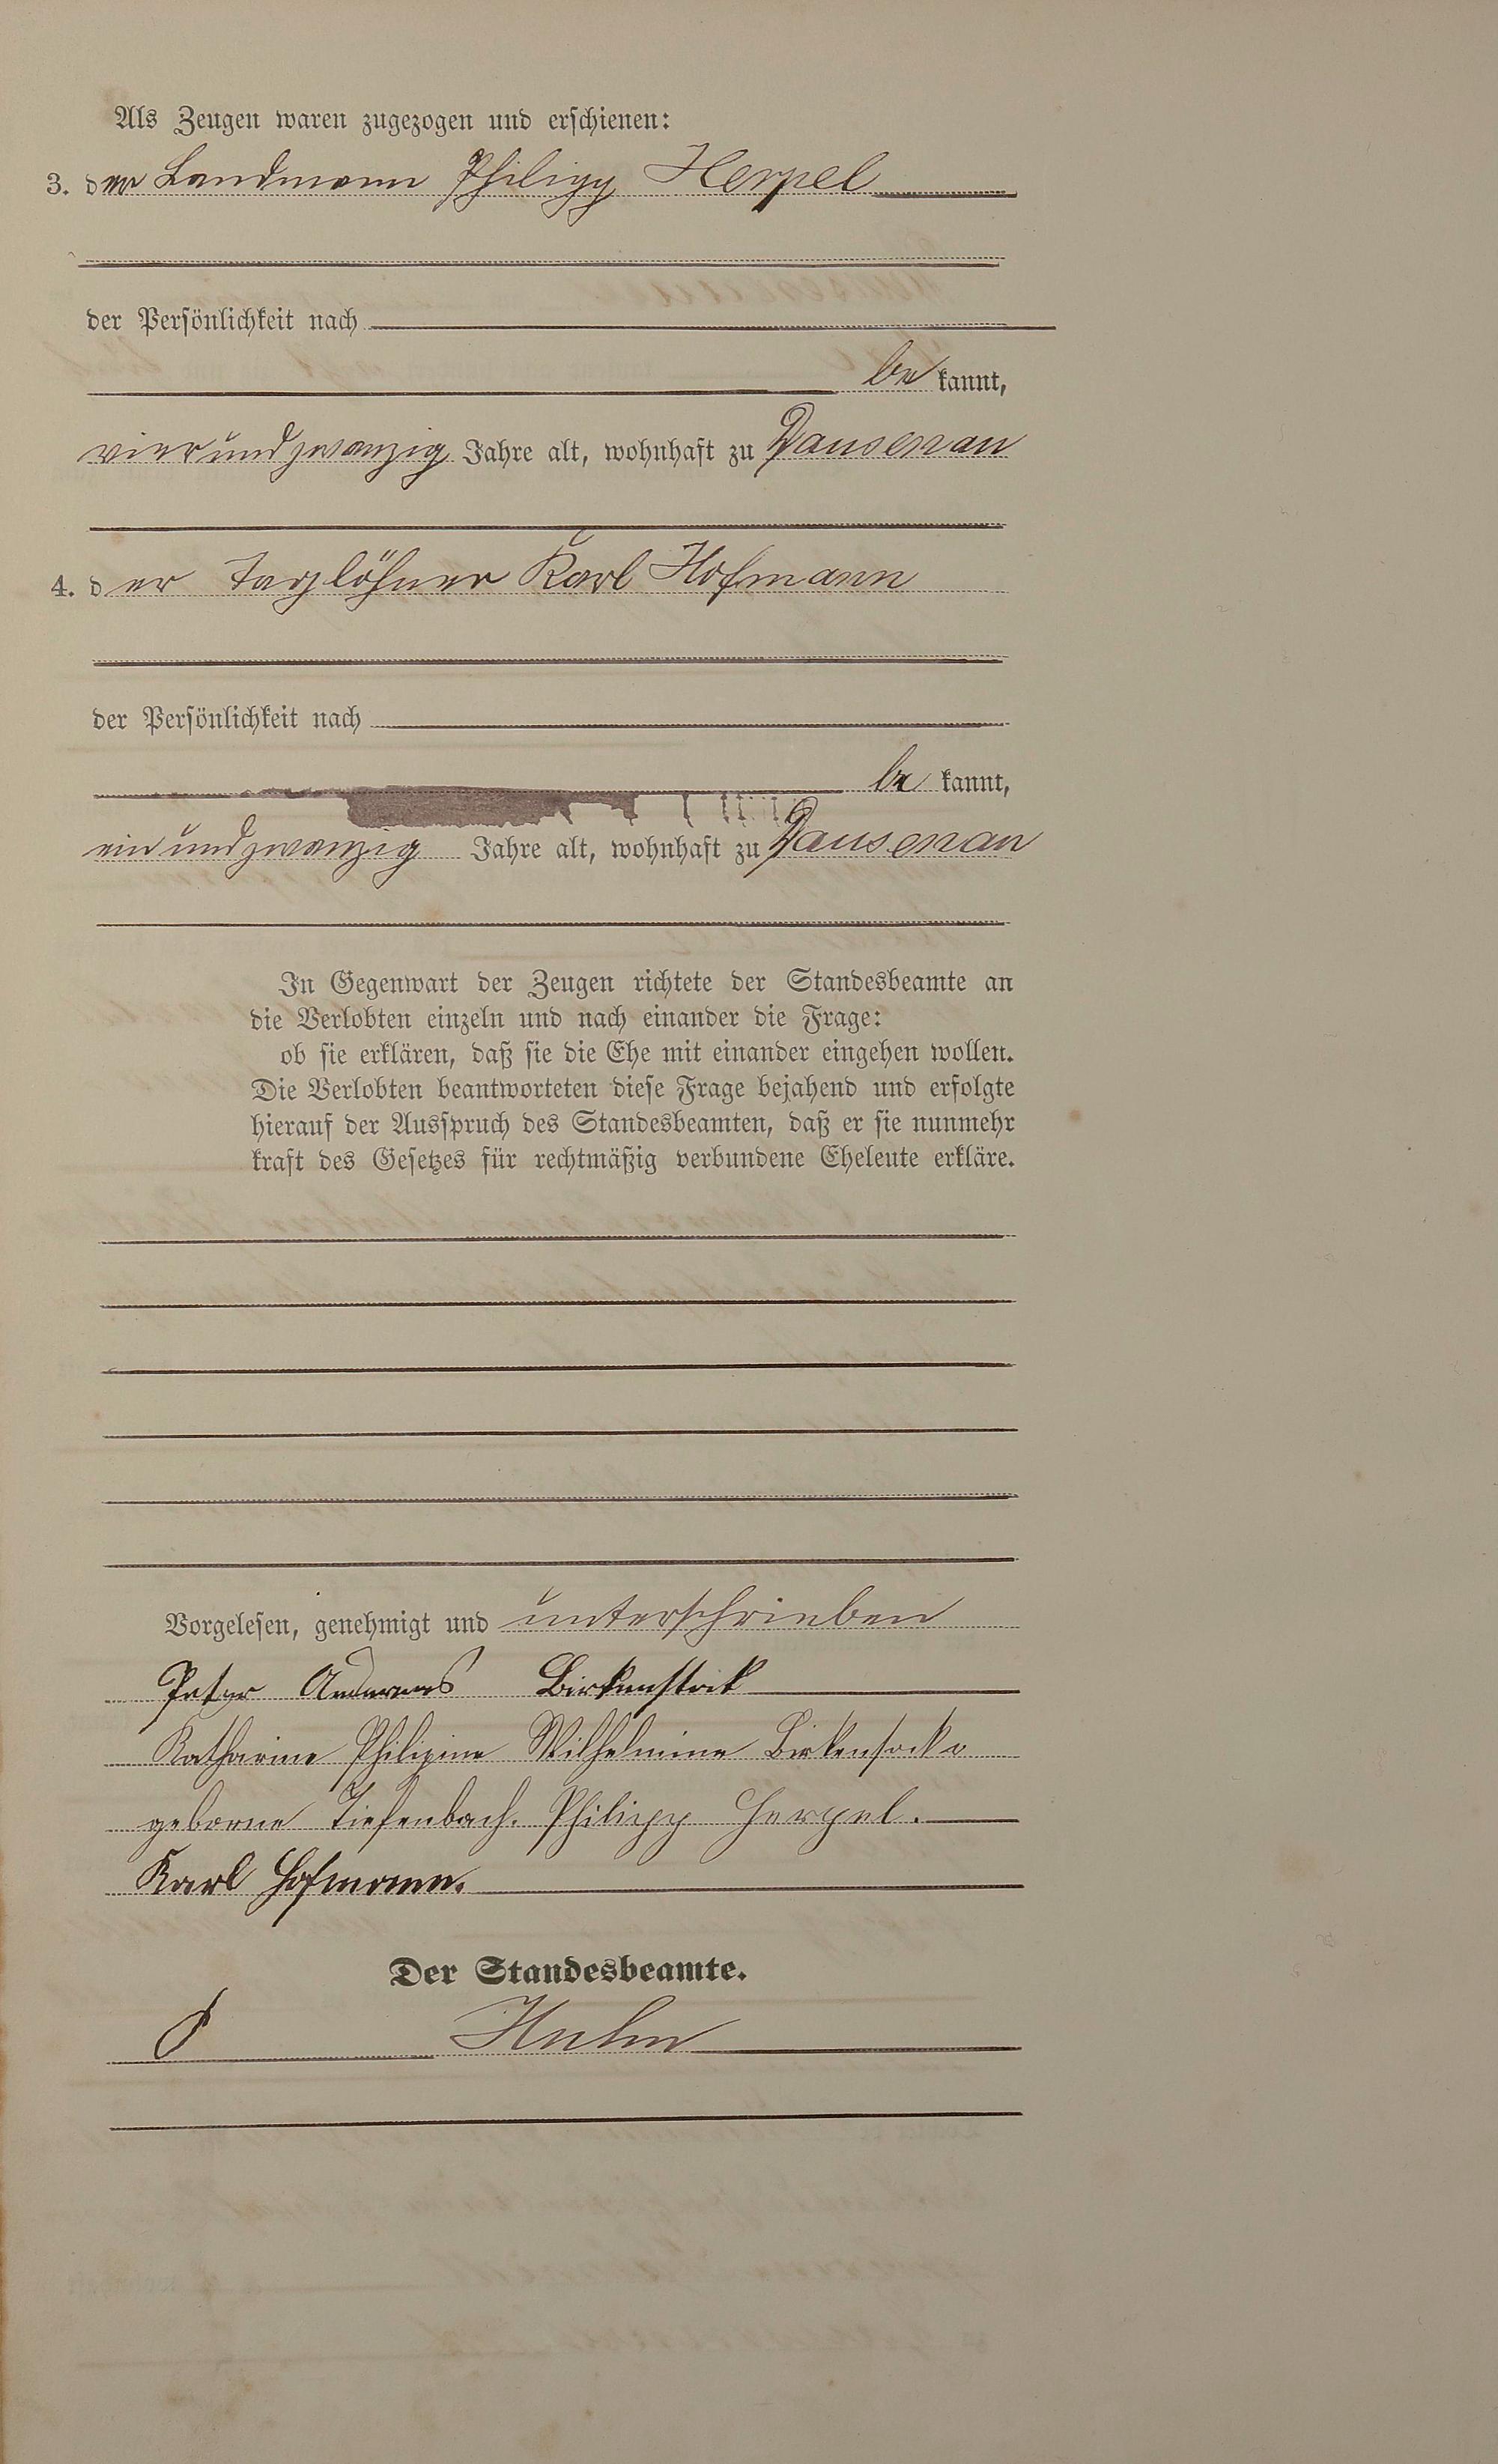 Als Zeugen waren zugezogen und erschienen:
3. der Landmann Philipp Herpel
der Persönlichkeit nach
be kannt,
vierundzwanzig Jahre alt, wohnhaft zu Dausenau
4. der Taglöhner Karl Hofmann
der Persönlichkeit nach
be kannt,
einundzwanzig Jahre alt, wohnhaft zu Dausenau
In Gegenwart der Zeugen richtete der Standesbeamte an
die Verlobten einzeln und nach einander die Frage:
ob sie erklären, daß sie die Ehe mit einander eingehen wollen.
Die Verlobten beantworteten diese Frage bejahend und erfolgte
hierauf der Ausspruch des Standesbeamten, daß er sie nunmehr
kraft des Gesetzes für rechtmäßig verbundene Eheleute erkläre.
Vorgelesen, genehmigt und unterschrieben
Peter Andreas Birkenstock
Katharine Philipine Wilhelmine Birkenstock
geborne Tiefenbach. Philipp Herpel.
Karl Hofmann.
Der Standesbeamte.